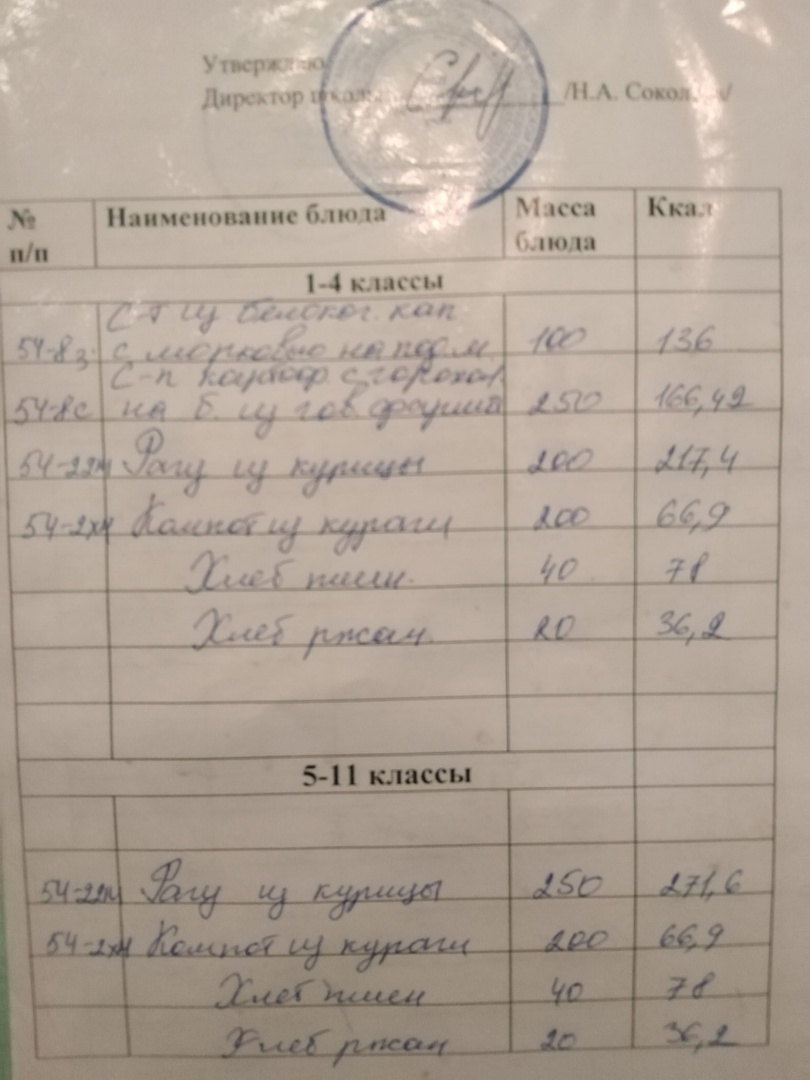 Утверждаю
Директор школы /Н.А. Сокол
№ п/п Наименование блюда Масса блюда Ккал
1-4 классы
С-т из белокоч. кап
54-8з. с морковью на под.м. 100 136
С-п картоф. с горохом
54-8с на б. из гов. 250 166,42
54-22м Рагу из курицы 200 217,4
54-2хн Компот из кураги 200 66,9
Хлеб пшен. 40 78
Хлеб ржан. 20 36,2
5-11 классы
54-22м Рагу из курицы 250 271,6
54-2хн Компот из кураги 200 66,9
Хлеб пшен 40 78
Хлеб ржан 20 36,2